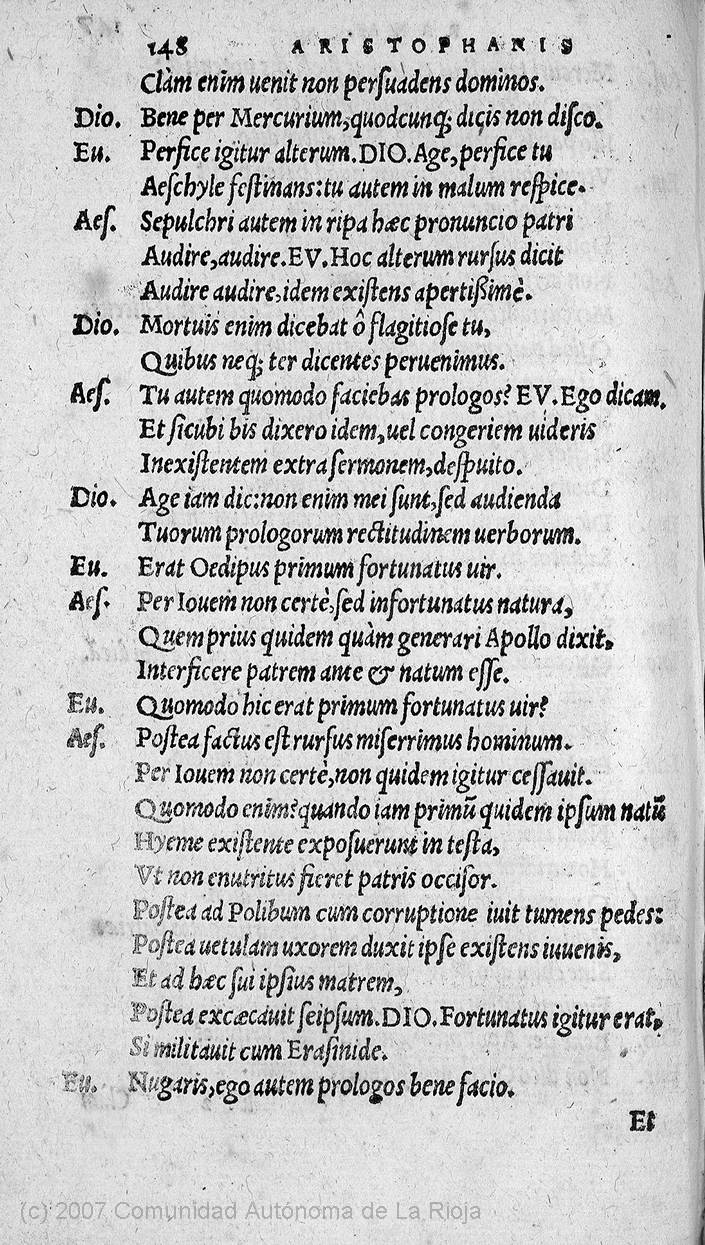 148 ARISTOPHANIS
Clàm enim uenit non perſuadens dominos.
Dio. Bene per Mercurium, quodcunq; dicis non diſco.
Eu. Perfice igitur alterum. DIO. Age, perfice tu
Aeſchyle feſtinans: tu autem in malum reſpice.
Aeſ. Sepulchri autem in ripa hæc pronuncio patri
Audire, audire. EV. Hoc alterum rurſus dicit
Audire audire, idem exiſtens apertißimè.
Dio. Mortuis enim dicebat ô flagitioſe tu,
Quibus neq; ter dicentes peruenimus.
Aeſ. Tu autem quomodo faciebas prologos? EV. Ego dicam.
Et ſicubi bis dixero idem, uel congeriem uideris
Inexiſtentem extra ſermonem, deſpuito.
Dio. Age iam dic: non enim mei ſunt, ſed audienda
Tuorum prologorum rectitudinem uerborum.
Eu. Erat Oedipus primum fortunatus uir.
Aeſ. Per Iouem non certè, ſed infortunatus natura,
Quem prius quidem quàm generari Apollo dixit,
Interficere patrem ante & natum eſſe.
Eu. Quomodo hic erat primum fortunatus uir?
Aeſ. Poſtea factus eſt rurſus miſerrimus hominum.
Per Iouem non certè, non quidem igitur ceſſauit.
Quomodo enim? quando iam primũ quidem ipſum natũ
Hyeme exiſtente expoſuerunt in teſta,
Vt non enutritus fieret patris occiſor.
Poſtea ad Polibum cum corruptione iuit tumens pedes:
Poſtea uetulam uxorem duxit ipſe exiſtens iuuenis,
Et ad hæc ſui ipſius matrem,
Poſtea excæcauit ſeipſum. DIO. Fortunatus igitur erat,
Si militauit cum Eraſinide.
Eu. Nugaris, ego autem prologos bene facio.
Et
(c) 2007 Comunidad Autónoma de La Rioja